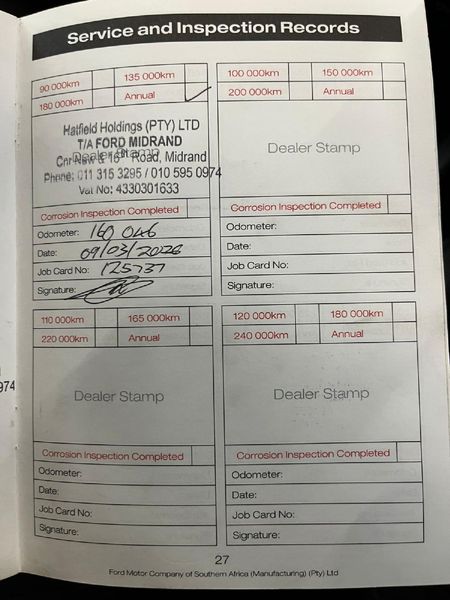 Service and Inspection Records
90 000km
135 000km
180 000km
Annual ✓
Hatfield Holdings (PTY) LTD
T/A FORD MIDRAND
Dealer Stamp
Cnr New & 16th Road, Midrand
Phone: 011 315 3295 / 010 595 0974
Vat No: 4330301633
Corrosion Inspection Completed
Odometer: 160 046
Date: 09/03/2026
Job Card No: 125737
Signature:
100 000km
150 000km
200 000km
Annual
Dealer Stamp
Corrosion Inspection Completed
Odometer:
Date:
Job Card No:
Signature:
110 000km
165 000km
220 000km
Annual
Dealer Stamp
Corrosion Inspection Completed
Odometer:
Date:
Job Card No:
Signature:
120 000km
180 000km
240 000km
Annual
Dealer Stamp
Corrosion Inspection Completed
Odometer:
Date:
Job Card No:
Signature:
974
27
Ford Motor Company of Southern Africa (Manufacturing) (Pty) Ltd